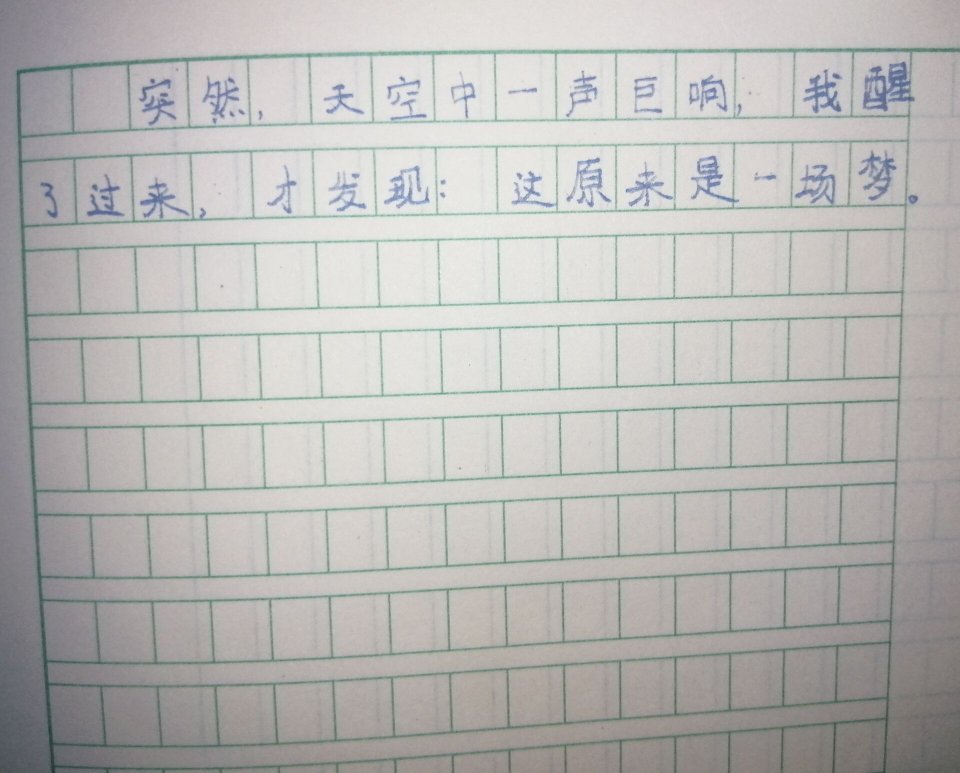 突然，天空中一声巨响，我醒
了过来，才发现：这原来是一场梦。